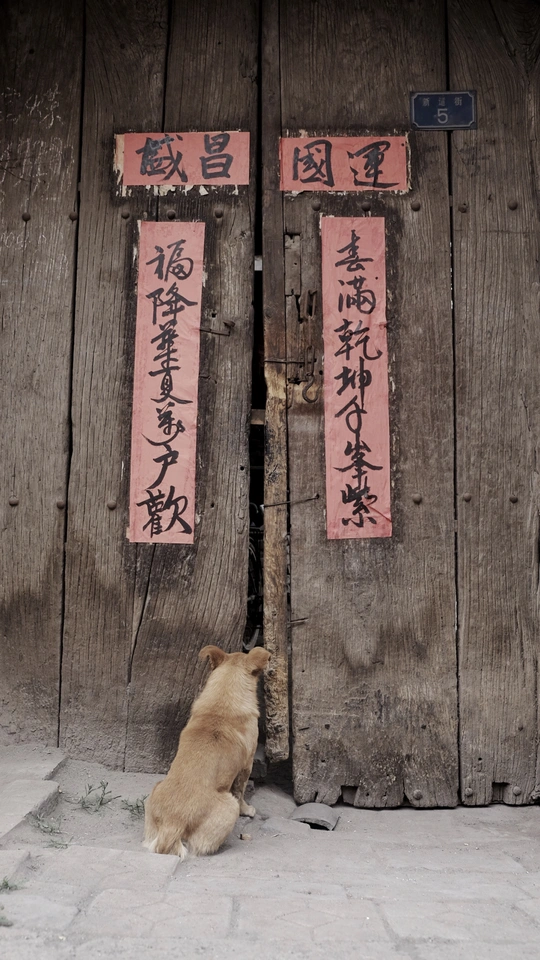 國運
昌盛
春滿乾坤千峯紫
福降華夏萬户歡
5